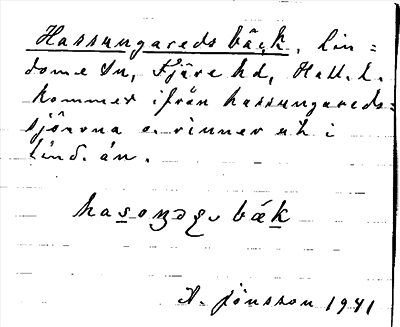 Hassungareds bäck, Lin=
dome Sn, Fjäre hd, Hall. l.
Kommer ifrån hassungareds=
sjöarna o. rinner ut i
Lind. ån.
bæk
A. Jönsson 1941